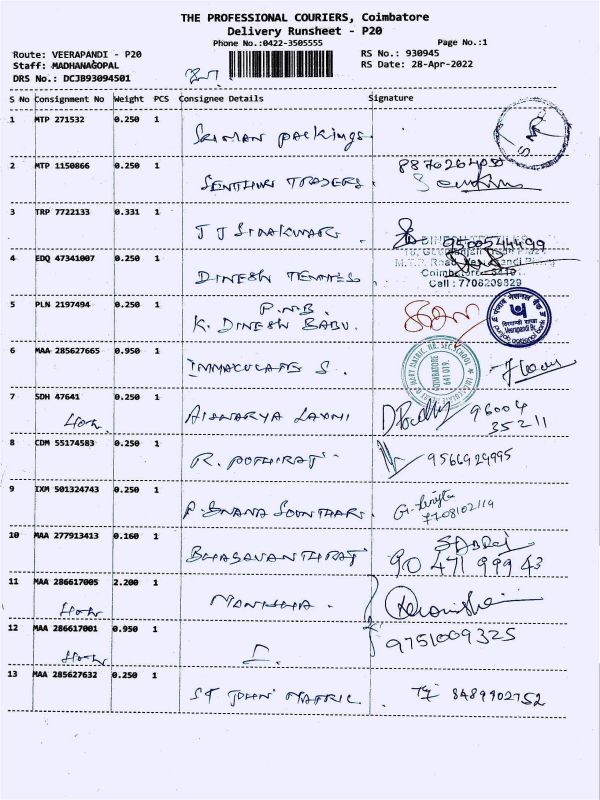 THE PROFESSIONAL COURIERS, Coimbatore
Delivery Runsheet - P20
Phone No.:0422-3505555
Page No.:1
Route: VEERAPANDI - P20
RS No.: 930945
Staff: MADHANAGOPAL
RS Date: 28-Apr-2022
DRS No.: DCJB93094501
S No Consignment No Weight PCS Consignee Details Signature
1 MTP 271532 0.250 1
SRIMAN PACKINGS
2 MTP 1150866 0.250 1
SENTHUR TRADERS.
3 TRP 7722133 0.331 1
JJ SIVAKUMAR 9500544499
4 EDQ 47341007 0.250 1
DINESH
Call : 7708209329
5 PLN 2197494 0.250 1
P.N.B.
K. DINESH BABU.
Veerapandi
punjab national bank
6 MAA 285627665 0.950 1
IMMACULATE S.
MATRIC. HR. SEC. SCHOOL
COIMBATORE
641 019.
7 SDH 47641 0.250 1
AISWARYA LAXMI
96004
35211
8 CDM 55174583 0.250 1
R. POTHIRAJ. 9566929995
9 IXM 501324743 0.250 1
P. GNANA SOUNTHARI
7708102114
10 MAA 277913413 0.160 1
BHAGAVANTHRAJ
90 471 999 43
11 MAA 286617005 2.200 1
MANISHA.
12 MAA 286617001 0.950 1
9751009325
13 MAA 285627632 0.250 1
ST JOHN MATRIC. 8489902752